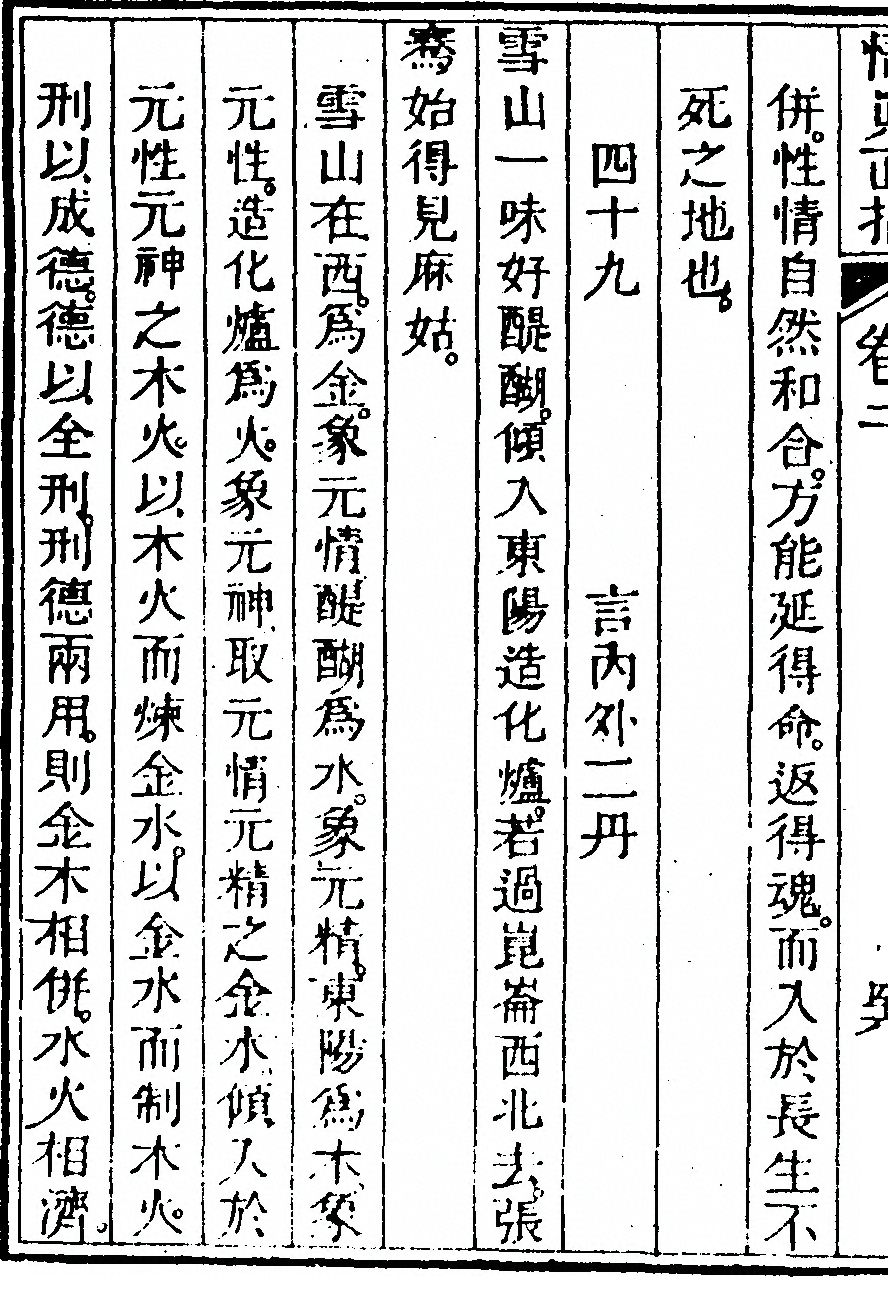 卷二
併。性情自然和合。方能延得命。返得魂。而入於長生不
死之地也。
四十九 言內外二丹
雪山一味好醍醐。傾入東陽造化爐。若過崑崙西北去。張
騫始得見麻姑。
雪山在西。爲金。象元情醍醐爲水。象元精。東陽爲木象
元性。造化爐爲火。象元神取元情元精之金水傾入於
元性元神之木火。以木火而煉金水。以金水而制木火。
刑以成德。德以全刑。刑德兩用。則金木相併。水火相濟。